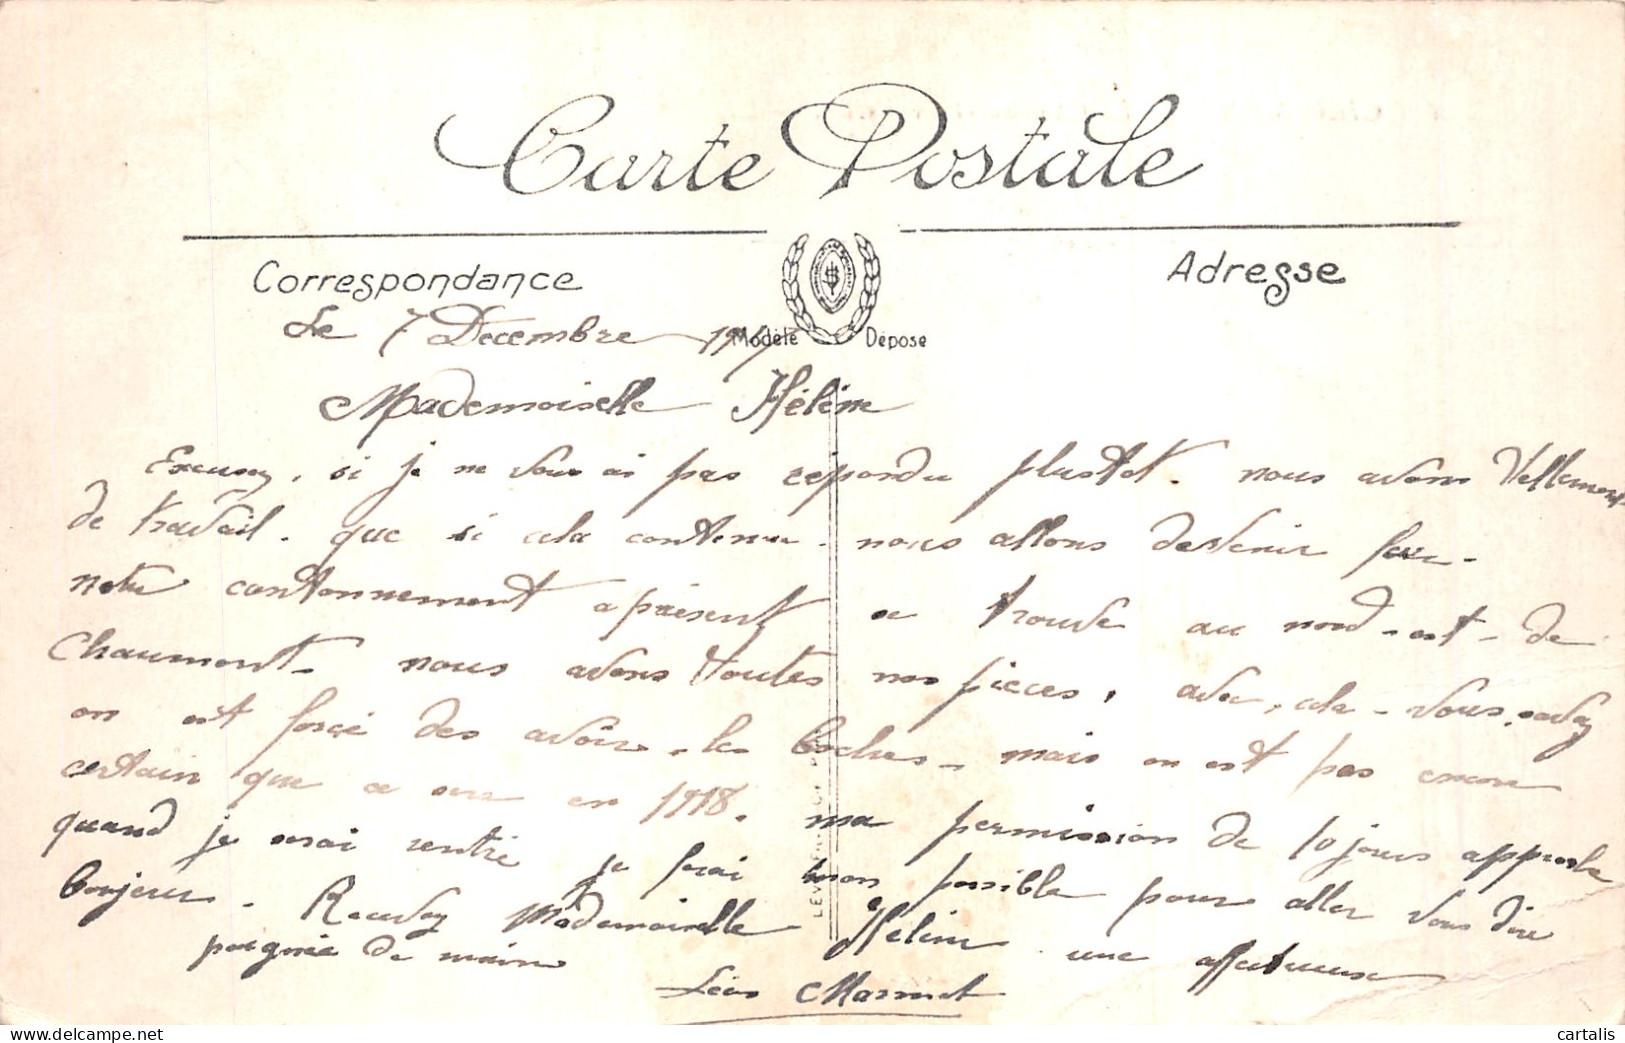 Carte Postale
Correspondance
Adresse
Modèle Déposé
Le 7 Decembre 1917
Mademoiselle Hélène
Excusez, si je ne vous ai pas répondu plustot. nous avons tellement
de travail. que si cela continu. nous allons devenir fou.
notre cantonnement apresent ce trouve au nord-est-de
Chaumont. nous avons toutes nos pieces, avec, cela-vous, savez
on est forcé des avoir. les boches, mais on est pas encore
certain que ce sera en 1918. ma permission de 10 jours approche
quand je serai rentré je ferai mon possible pour aller vous dire
bonjour. Recevez Mademoiselle Hélène une affectueuse
poignée de main
Léon
cartalis